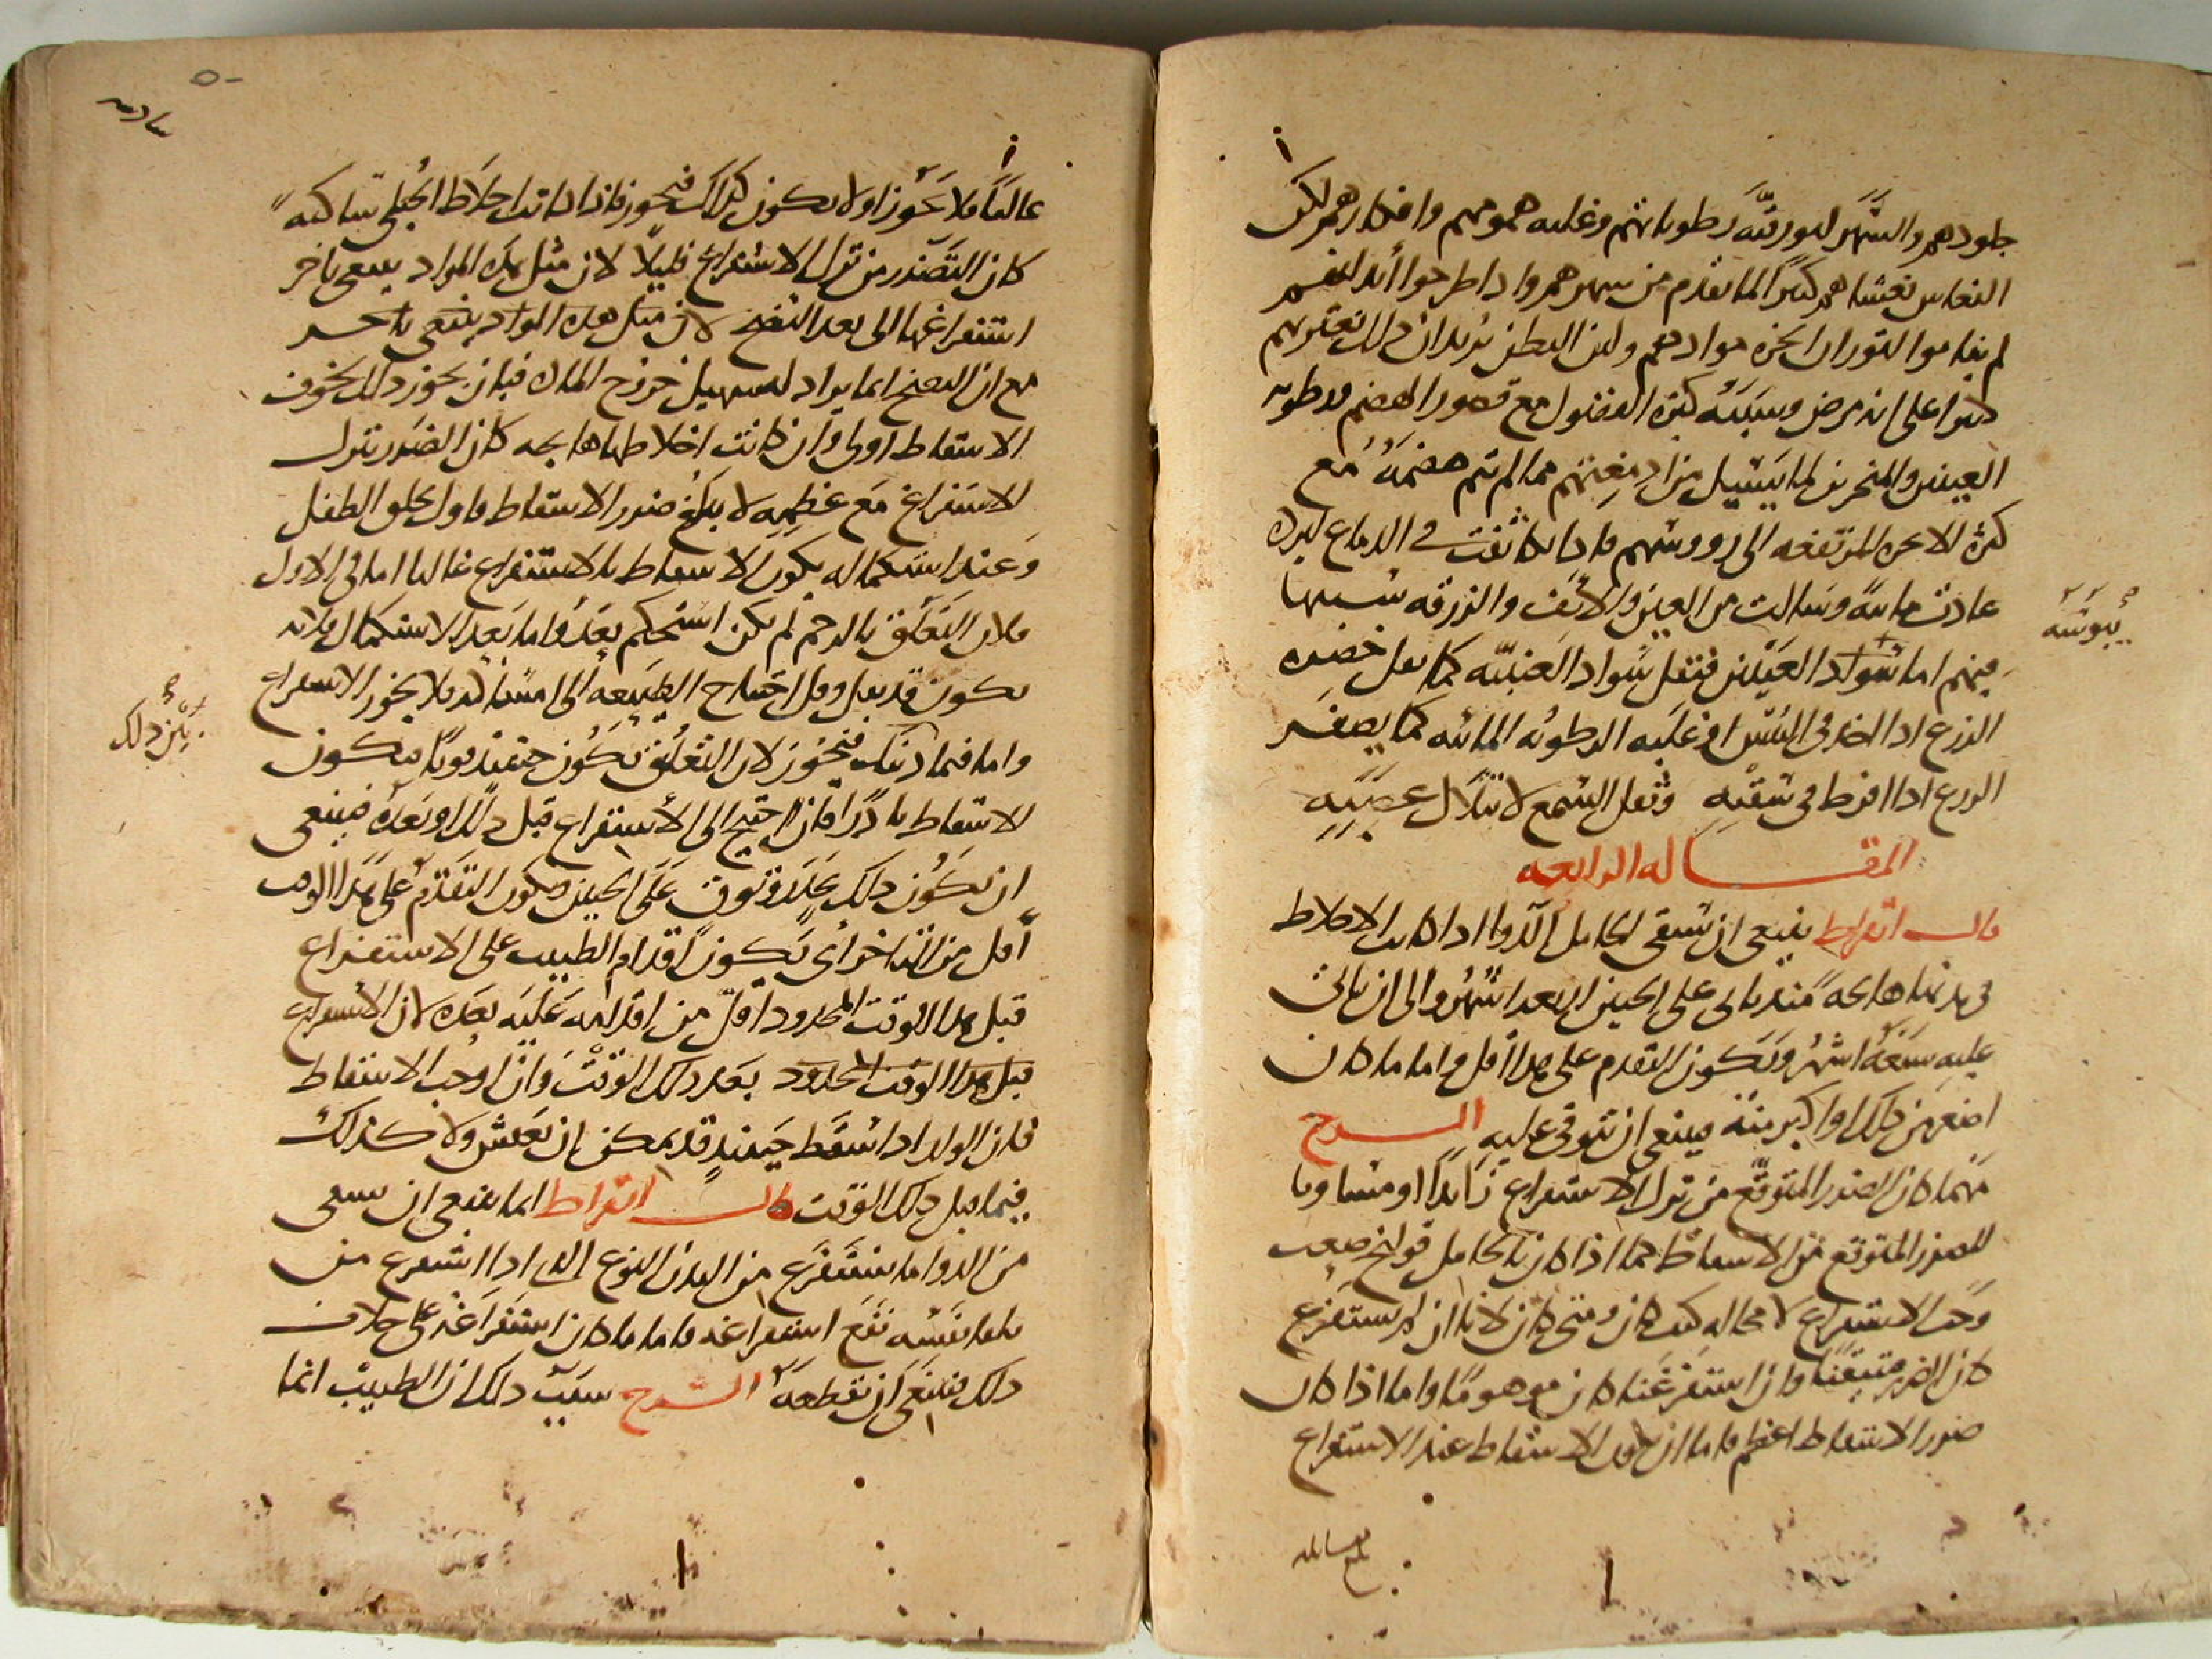 جلودهم والسهر لبورقية رطوباتهم وغلبة همومهم وافكارهم لكن
النعاس يغشاهم كثيرا لما تقدم من سهرهم واذا طرحوا أبدانهم
لم يناموا لثوران ابخرة موادهم ولين البطن يريد ان ذلك يعتريهم
كثيرا على انه مرض وسببه كثرة الفضول مع قصور الهضم ورطوبة
العينين والمنخرين لما يسيل من ادمغتهم مما لم يتم هضمه مع
كثرة الابخرة المرتفعة الى رووسهم فاذا تكاثفت في الدماغ لبرده
عادت مائية وسالت من العين والانف والزرقة سببها
يبوسة
فيهم اما سواد العينين فتقل سواد العنبية كما تقل خضرة
الزرع اذا اخذ في اليبس او غلبة الرطوبة المائية كما يصفر
الزرع اذا افرط في سقيه وثقل السمع لابتلال عصبه
المقالة الرابعة
قال ابقراط ينبغي ان تسقى الحامل الدوا اذا كانت الاخلاط
في بدنها هائجة منذ ياتي على الجنين اربعة اشهر والى ان ياتي
عليه سبعة اشهر ويكون التقدم على هذا أقل واما ما كان
اصغر من ذلك او اكبر منه فينبغي ان تتوقى عليه الشرح
مهما كان الضرر المتوقع من ترك الاستفراغ زائدا او مساويا
للضرر المتوقع من الاسقاط كما اذا كان بالحامل قولنج صعب
وجب الاستفراغ لا محالة كيف كان ومتى كان لانا ان لم نستفرغ
كان الضرر متيقنا وان استفرغنا كان موهوما واما اذا كان
ضرر الاسقاط اعظم فاما ان يكون الاسقاط عند الاستفراغ
غالبا فلا يجوز او لا يكون كذلك فيجوز فاذا كانت اخلاط الحبلى ساكنة
كان التضرر من ترك الاستفراغ قليلا لان مثل هذه المواد ينبغي تاخر
استفراغها الى بعد النضج لان مثل هذه المواد ينبغي تاخر
مع ان النضج انما يراد لتسهيل خروج المادة فبان يجوز ذلك لخوف
الاسقاط اولى وان كانت اخلاطها هائجة كان الضرر بترك
الاستفراغ مع عظمه لا يبلغ ضرر الاسقاط فاول تخلق الطفل
وعند استكماله يكون الاسقاط بالاستفراغ غالبا اما في الاول
فلان التعلق بالرحم لم يكن استحكم بعد واما بعد الاستكمال فلانه
يكون قد ثقل وقل احتياج الطبيعة الى امساكه فلا يجوز الاستفراغ
واما فيما بين ذلك فيجوز لان التعلق يكون حينئذ قويا فيكون
بين ذلك
الاسقاط نادرا فان احتيج الى الاستفراغ قبل ذلك او بعده فينبغي
ان يكون ذلك بحذر وتوق على الجنين ويكون التقدم على هذا الوقت
أقل من التاخر أي يكون اقدام الطبيب على الاستفراغ
قبل هذا الوقت المحدود اقل من اقدامه عليه بعده لان الاستفراغ
قبل هذا الوقت المحدود بعد ذلك الوقت وان اوجب الاسقاط
فان الولد اذا اسقط حينئذ قد يمكن ان يعيش ولا كذلك
فيما قبل ذلك الوقت قال ابقراط انما ينبغي ان يسقى
من الدوا ما يستفرغ من البدن النوع الذي اذا استفرغ من
تلقا نفسه نفع استفراغه فاما ما كان استفراغه على خلاف
ذلك فينبغي ان تقطعه الشرح سبب ذلك ان الطبيب انما